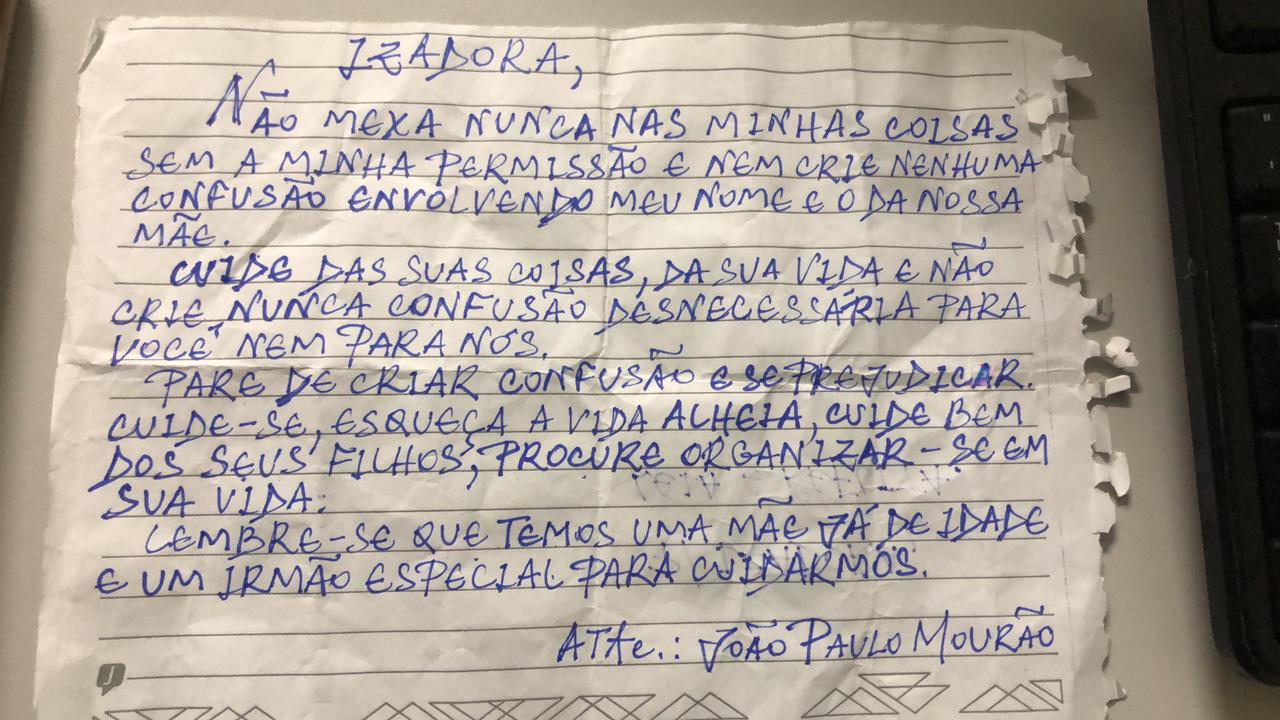 IZADORA,
NÃO MEXA NUNCA NAS MINHAS COISAS
SEM A MINHA PERMISSÃO E NEM CRIE NENHUMA
CONFUSÃO ENVOLVENDO MEU NOME E O DA NOSSA
MÃE.
CUIDE DAS SUAS COISAS, DA SUA VIDA E NÃO
CRIE NUNCA CONFUSÃO DESNECESSÁRIA PARA
VOCÊ NEM PARA NÓS.
PARE DE CRIAR CONFUSÃO E SE PREJUDICAR.
CUIDE-SE, ESQUEÇA A VIDA ALHEIA, CUIDE BEM
DOS SEUS FILHOS, PROCURE ORGANIZAR-SE EM
SUA VIDA.
LEMBRE-SE QUE TEMOS UMA MÃE JÁ DE IDADE
E UM IRMÃO ESPECIAL PARA CUIDARMOS.
ATTe.: JOÃO PAULO MOURÃO
J